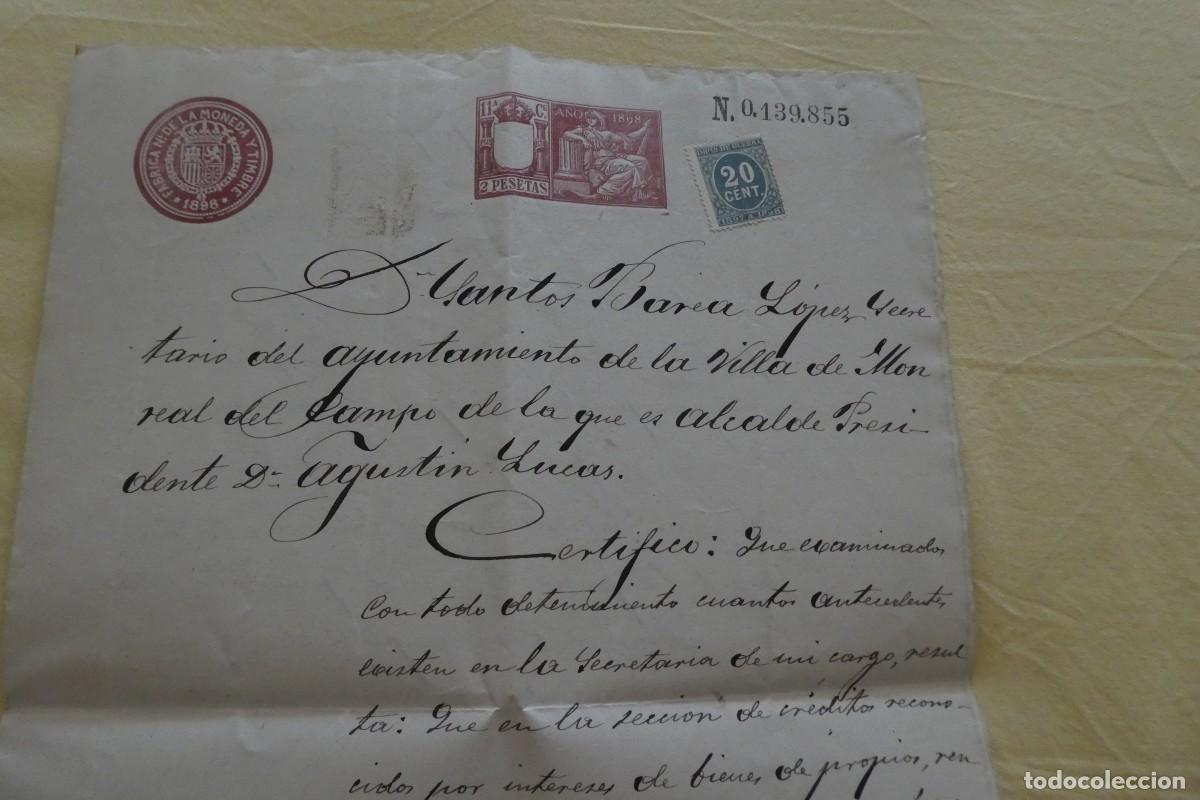 FABRICA N. DE LA MONEDA Y TIMBRE
1898
11ª Cª
AÑO 1898
2 PESETAS
N. 0.139.855
20
CENT.
Dn Santos Barea López, Secre
tario del ayuntamiento de la Villa de Mon
real del Campo de la que es alcalde Presi-
dente Dn Agustin Lucas.
Certifico: Que examinados
con todo detenimiento cuantos antecedentes
existen en la Secretaria de mi cargo, resul
ta: Que en la seccion de créditos recono-
cidos por intereses de bienes de propios, ren
todocoleccion